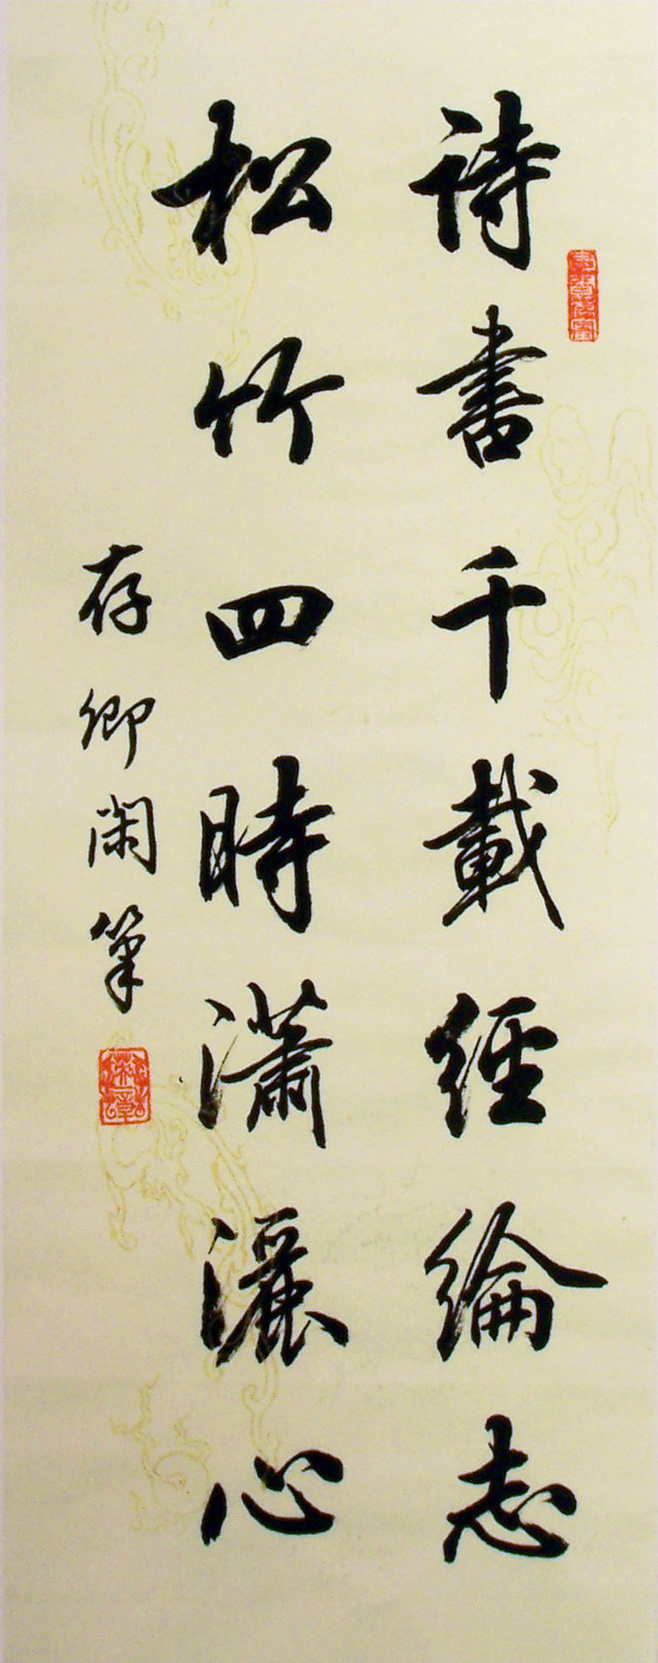 詩書千載經綸志
松竹四時瀟灑心
存卿閑筆